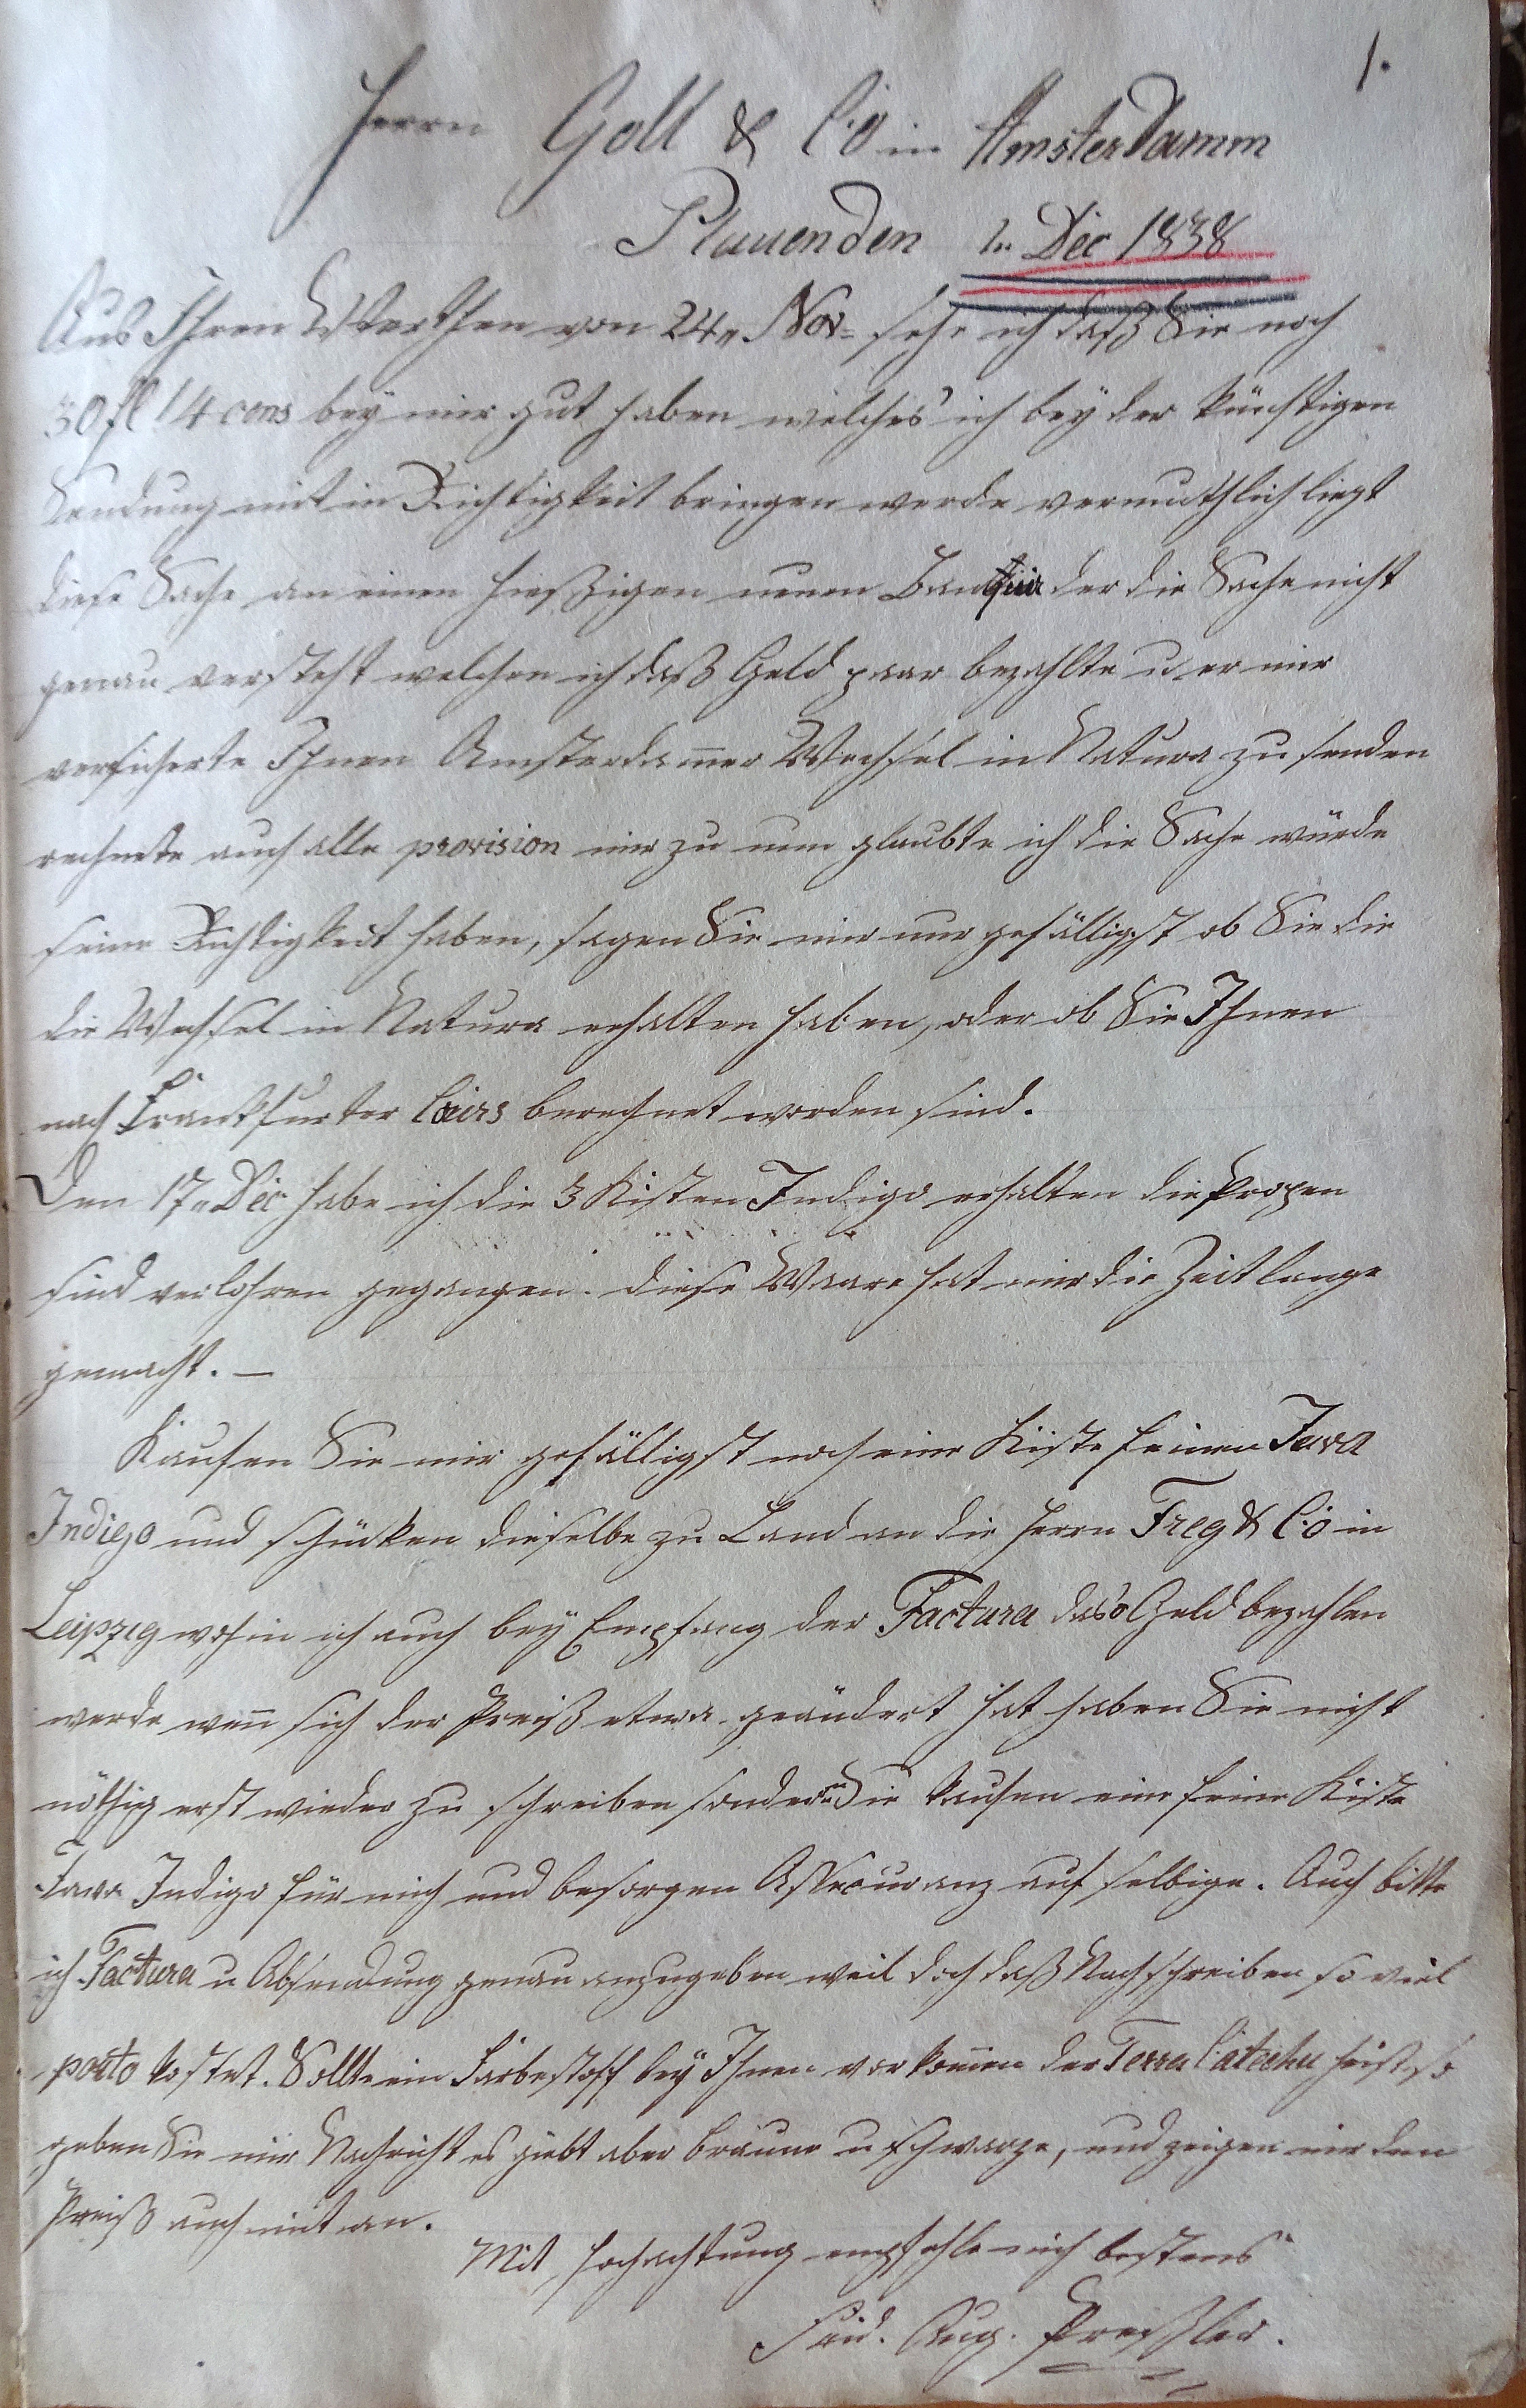 1.
Herrn Goll & C:o in Amsterdamm
Plauen den Dec 1838
Aus Ihren Werthen von 24„ Nov= sehe ich daß Sie noch
30 fl 14 cens bey mir gut haben welches ich bey der künftigen
Sendung mit in Richtigkeit bringen werde vermuthlich liegt
diese Sache an einen hießigen neuen Banquir der die Sache nicht
genau versteht welchen ich daß Geld paar bezahlte u er mir
versicherte Ihnen Amsterdam̄er Wechsel in Natura zu senden
rechnete auch alle provision mir zu nun glaubte ich die Sache würde
seine Richtigkeit haben, sagen Sie mir nur gefälligst ob Sie die
die Wechsel in Natura erhalten haben, oder ob Sie Ihnen
nach Frankfurter Cours berechnet worden sind.
Den 17„ Dec habe ich die 3 Kisten Indigo erhalten die Propen
sind verlohren gegangen. diese Waare hat mir die Zeit lange
gemacht. —
Kaufen Sie mir gefälligst noch eine Kiste feinen Java
Indigo und schücken dieselbe zu Land an die Herrn Freg & C:o in
Leipzig wohin ich auch bey Empfang der Factura das Geld bezahlen
werde wen̄ sich der Preiß etwa geändert hat haben Sie nicht
nöthig erst wieder zu schreiben sondern Sie kaufen eine feine Kiste
Java Indigo für mich und besorgen Assecuranz auf selbige. Auch bitte
ich Factura u Absendung genau anzugeben weil doch daß Nachschreiben so viel
porto kostet. Sollte ein Farbestoff bey Ihnen vorkom̄en der Terra Catechu heist so
geben Sie mir Nachricht es giebt aber braune u schwarze, und zeigen mir den
Preiß auch mit an.
Mit Hochachtung empfehle mich bestens
Frid. Aug. Preßler.